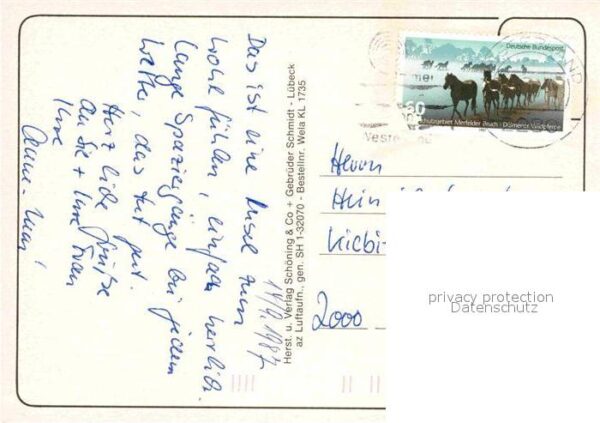 Das ist eine Insel zum
Wohl fühlen, einfach herrlich.
Lange Spaziergänge bei jedem
Wetter, das tut gut.
Herzliche Grüße
an Sie + Ihre Frau
Ihre
1987
Herst. u. Verlag Schöning & Co + Gebrüder Schmidt - Lübeck
az Luftaufn., gen. SH 1-32070 - Bestellnr. Wela KL 1735
Deutsche Bundespost
60
Merfelder Bruch - Dülmener Wildpferde
Herrn
2000
privacy protection
Datenschutz